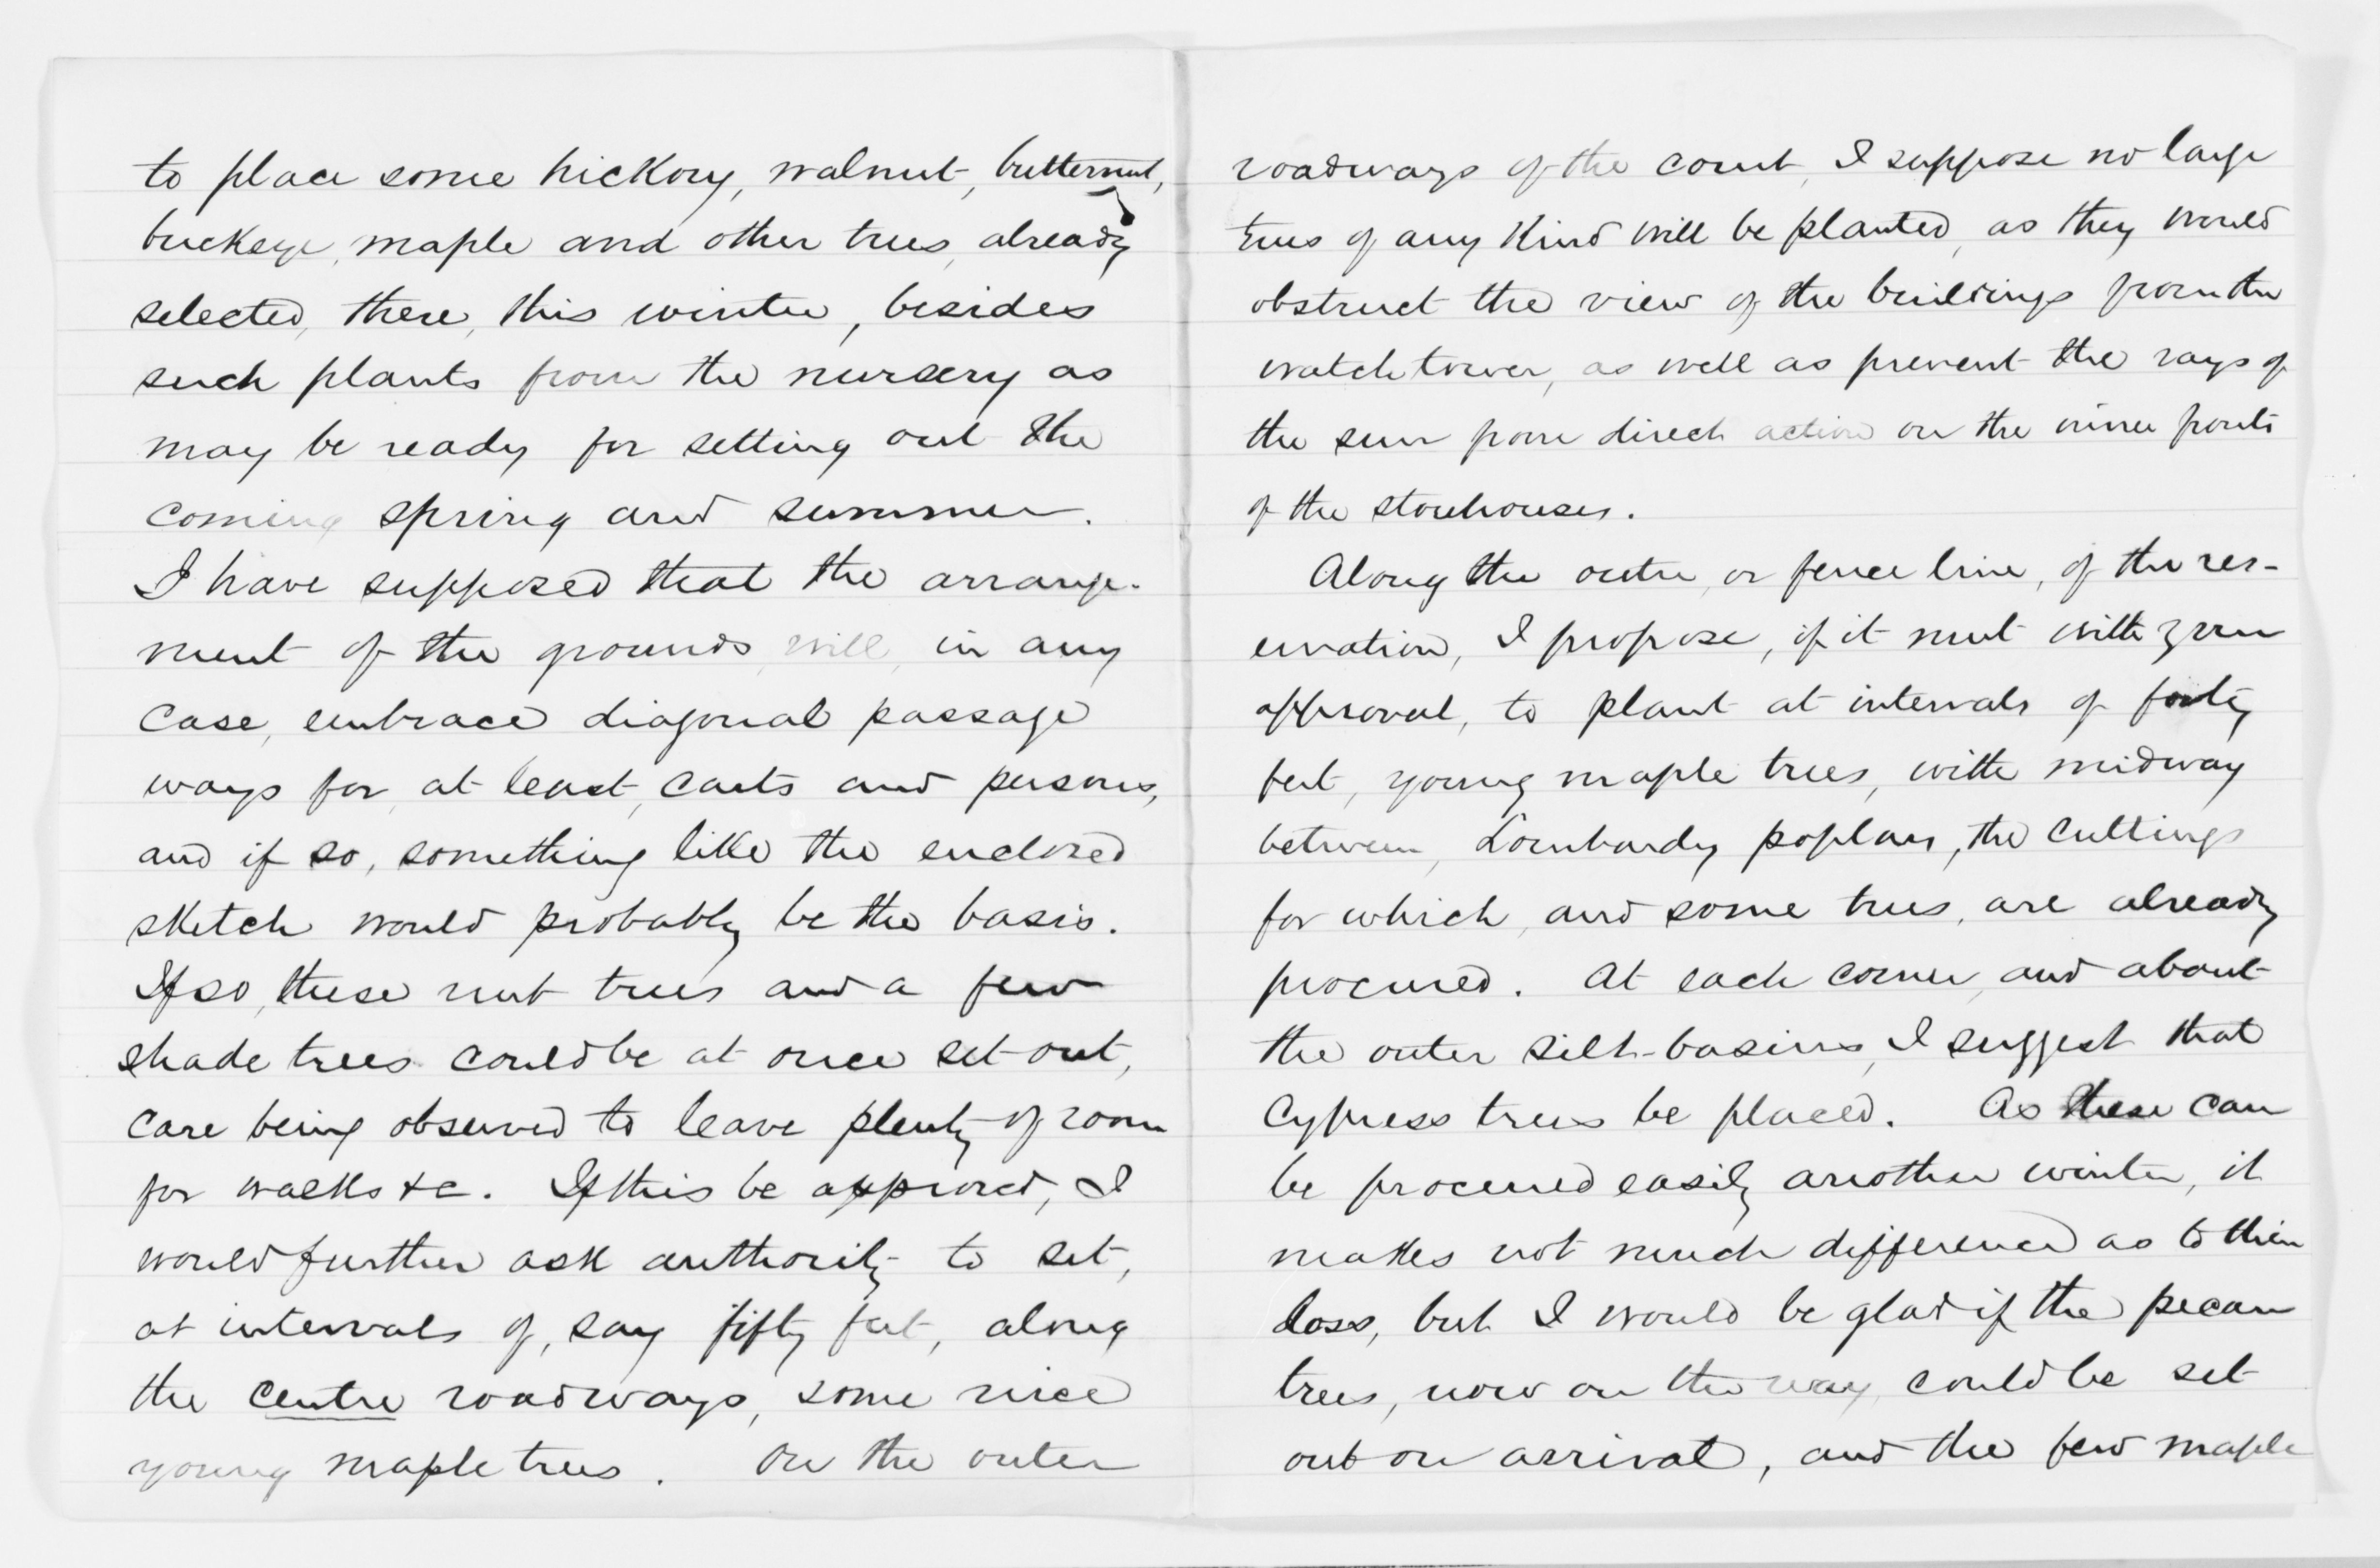 to place some hickory, walnut, butternut,
buckeye, maple and other trees, already
selected, there, this winter, besides
such plants from the nursery as
may be ready for setting out the
coming spring and summer.
I have supposed that the arrange-
ment of the grounds, will, in any
case, embrace diagonal passage
ways for, at least, carts and persons,
and if so, something like the enclosed
sketch would probably be the basis.
If so, these nut trees and a few
shade trees could be at once set out,
care being observed to leave plenty of room
for walks &c. If this be approved, I
would further ask authority to set,
at intervals of, say fifty feet, along
the centre roadways, some nice
young maple trees. On the outer
roadways of the court, I suppose no large
trees of any kind will be planted, as they would
obstruct the view of the buildings from the
watch tower, as well as prevent the rays of
the sun from direct action on the inner fronts
of the storehouses.
Along the outer, or fence line, of the res-
ervation, I propose, if it meet with your
approval, to plant at intervals of forty
feet, young maple trees, with midway
between, Lombardy poplars, the cuttings
for which, and some trees, are already
procured. At each corner, and about
the outer silt-basins, I suggest that
Cypress trees be placed. As these can
be procured easily another winter, it
makes not much difference as to their
loss, but I would be glad if the pecan
trees, now on the way, could be set
out on arrival, and the few maple